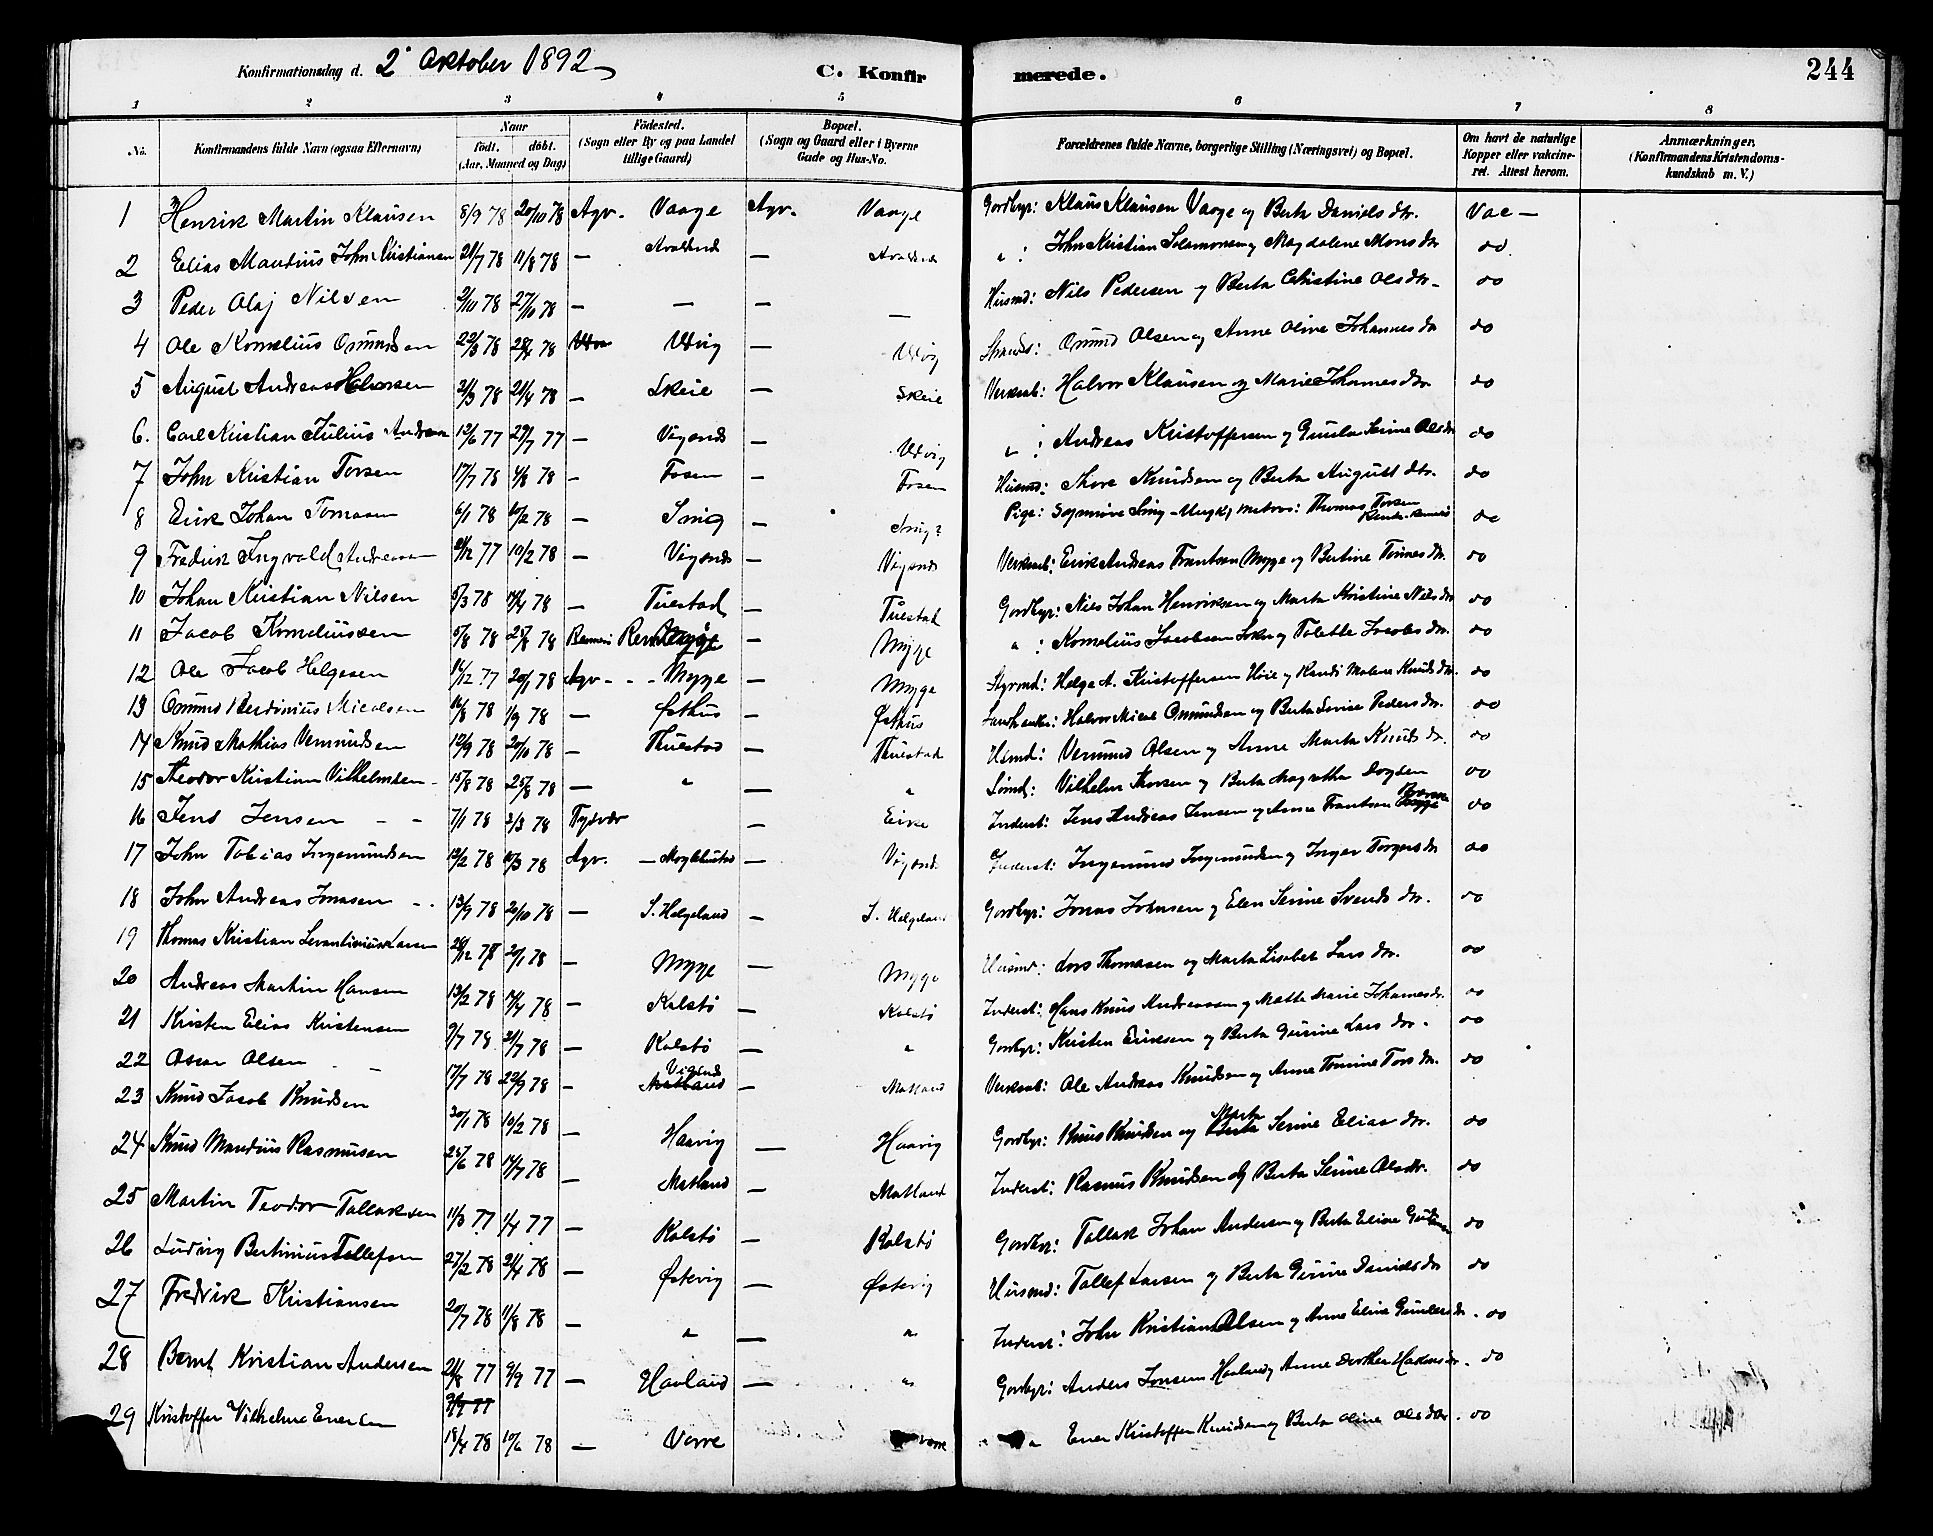 Konfirmationsdag d. 2' Oktober 1892 C. Konfirmerede. 244
1 2 3 4 5 6 7 8
No. Konfirmandens fulde Navn (ogsaa Efternavn) Naar födt. döbt. (Aar, Maaned og Dag) Födested. (Sogn eller By og paa Landet tillige Gaard) Bopæl. (Sogn og Gaard eller i Byerne Gade og Hus-No. Forældrenes fulde Navne, borgerlige Stilling (Næringsvei) og Bopæl. Om havt de naturlige Kopper eller vakcineret. Attest herom. Anmærkninger. (Konfirmandens Kristendomskundskab m. V.)
1 Henrik Martin Klausen 8/9 78 20/10 78 Agv. Vaage Agv. Vaage Gordbgr: Klaus Klausen Vaage og Berta Daniels dtr. Vac —
2 Elias Mandius John Kristiansen 21/7 78 11/8 78 — — " : John Kristian Salamonsen og Magdalene Mons dtr do.
3 Peder Olaj Nilsen 2/10 78 27/10 78 — — — — Husmd: Nils Pedersen og Berta Christine Olsdtr. do
4 Ole Kornelius Osmundsen 22/3 78 28/4 78 Utvig — Utvig Strands: Osmund Olsen og Anne Oline Johannes dtr do
5 August Andreas Halvorsen 2/3 78 21/4 78 — Skeie — Skeie Verksarb: Halvor Klausen og Marie Johannesdtr. do
6. Carl Kristian Julius Andersen 12/6 77 29/7 77 — Vigsnes — Utvig " : Andreas Kristoffersen og Gunla Serine Olsdtr do
7 John Kristian Torsen 17/7 78 4/8 78 — Fosen — Fosen Husmd: Thore Knudsen og Berta August dtr. do
8 Eirik Johan Tomasen 6/1 78 10/2 78 — Snig — Snig? Pige: Snig - Ungk, matros: Thomas Torsen do
9 Fredrik Ingvald Andreasen 2/12 77 10/2 78 — Vigsnes — Vigsnes Verksarb: Eirik Andreas Frantsen Mygge og Bertine Tönnes dtr. do
10 Johan Kristian Nilsen 5/3 78 14/4 78 — Tuestad — Tuestad Gordbgr: Nils Johan Henriksen og Marta Kristine Nils dtr do
11 Jacob Korneliussen 5/8 78 25/8 78 — Mygge " : Kornelius Jacobsen og Tolette Jacobs dtr. do
12 Ole Jacob Helgesen 16/12 77 20/1 78 Agv - - - Mygge — Mygge Styrmd: Helge A. Kristoffersen Høie og Randi Malene Knuds dtr. do
13 Osmund Berdinius Micalsen 16/8 78 1/9 78 — Østhus — Østhus : Halvor Mical Osmundsen og Berta Serine Peders dtr. do
14 Knud Mathias Vermundsen 12/9 78 20/10 78 — Thuestad — Thuestad Husmd: Vermund Olsen og Anne Marta Knuds dtr. do
15 Theodor Kristian Vilhelmsen - 15/8 78 25/8 78 — " — " Sömd: Vilhelm Thorsen og Berta Magretha do
16 Jens Jensen - - 7/1 78 3/3 78 Tysvær — Eike Inderst: Jens Andreas Jensen og Anne Frantsen do
17 John Tobias Ingemundsen 12/2 78 10/3 78 Agv. — — Vigsnes Inderst: Ingemund Ingemundsen og Inger Torgersdtr do
18 John Andreas Jonasen - - 13/9 78 20/10 78 — S. Helgeland — S. Helgeland Gordbgr: Jonas Johnsen og Elen Serine Svends dtr. do
19 Thomas Kristian Levantinius Larsen 26/12 77 20/1 78 — Mygge — Mygge Husmd: Lars Thomasen og Marta Lisabet Lars dtr. do
20 Andreas Martin Hansen 13/2 78 14/4 78 — Kalstø — Kalstø Inderst: Hans Knud Andreassen og Mette Marie Johannesdtr. do
21 Kristen Elias Kristensen 2/7 78 21/7 78 — Kalstø — " Gordbgr: Kristen Eriksen og Berta Gurine Lars dtr. do
22 Oscar Olsen - - 17/7 78 22/9 78 — Vigsnes Matland — Matland Verksarb: Ole Andreas Knudsen og Anne Tomine Tors dtr. do
23 Knud Jacob Knudsen 20/1 78 10/2 78 — Haavig — Haavig Gordbgr: Knud Knudsen og Marta Berta Serine Elias dtr. do
24 Knud Mandius Rasmusen 25/6 78 14/7 78 — Matland — Matland Inderst: Rasmus Knudsen og Berta Serine Olsdtr. do
25 Martin Teodor Tallaksen 11/3 77 1/4 77 — Kalstø — Kalstø Gordbgr: Tallak Johan Andersen og Berta Eline do
26 Ludvig Bertinius Tollefsen 27/2 78 21/4 78 — Østevig — Østevig Husmd: Tollef Larsen og Berta Gurine Daniels dtr do
27 Fredrik Kristiansen 20/7 78 11/8 78 — " — " Inderst: John Kristian Olsen og Anne Eline Gunders dtr. do
28 Bernt Kristian Andersen 24/8 77 9/9 77 — Havland — " Gordbgr: Anders Jonsen Haaland og Anne Dorthea dtr. do
29 Kristoffer Vilhelm Enersen 9/9 77 18/4 78 10/6 78 — Vorre Vorre " Ener Kristoffer Knudsen og Berta Oline Olsdtr. do